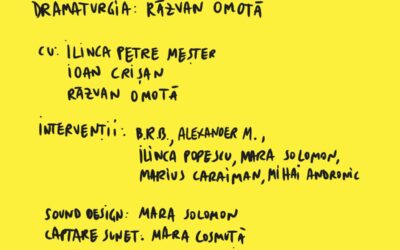 DRAMATURGIA: RĂZVAN OMOTĂ
CU: ILINCA PETRE MEȘTER
IOAN CRIȘAN
RĂZVAN OMOTĂ
INTERVENȚII: B.R.B., ALEXANDER M.,
ILINCA POPESCU, MARA SOLOMON,
MARIUS CARAIMAN, MIHAI ANDRONIC
SOUND DESIGN: MARA SOLOMON
CAPTARE SUNET: MARA COSMUȚĂ